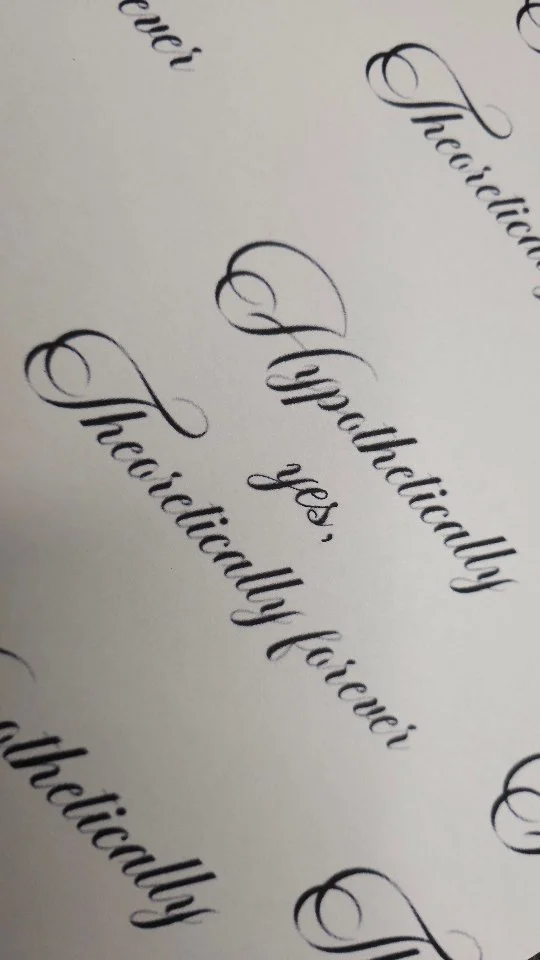 ever
Theoretically
Hypothetically
yes,
Theoretically forever
othetically
Th